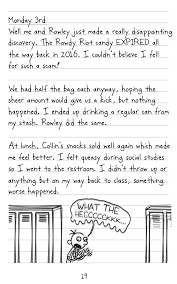 Monday 3rd
Well me and Rowley just made a really disappointing
discovery. The Rowdy Riot candy EXPIRED all
the way back in 2016. I couldn't believe I fell
for such a scam!
We had half the bag each anyway, hoping the
sheer amount would give us a kick, but nothing
happened. I ended up drinking a regular can from
my stash. Rowley did the same.
At lunch, Collin's snacks sold well again which made
me feel better. I felt queasy during social studies
so I went to the restroom. I didn't throw up or
anything but on my way back to class, something
worse happened.
WHAT THE
HECCCCCKKK...
19